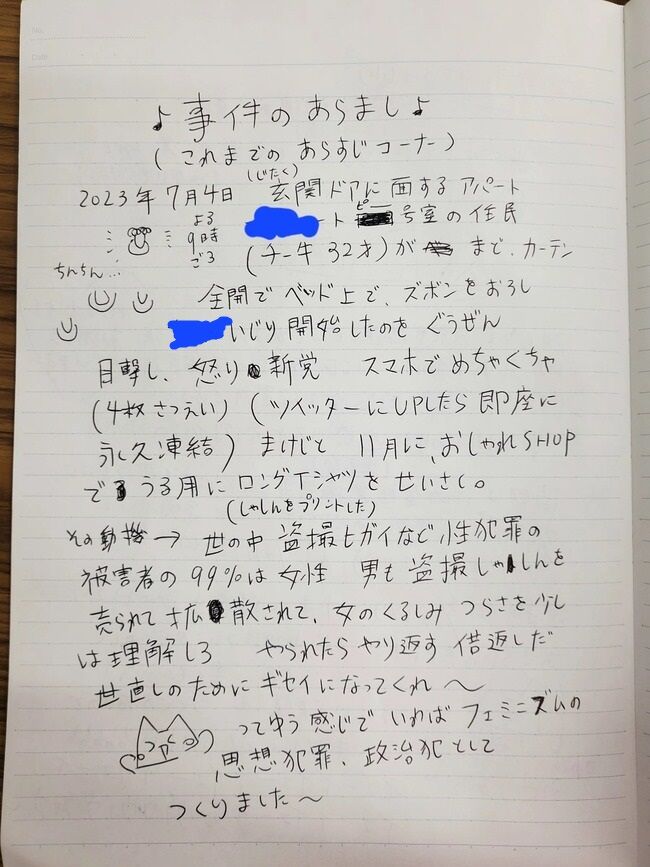 ♪事件のあらまし♪
(これまでの あらすじ コーナー)
(じたく)
2023年7月4日 玄関ドアに面する アパート
よる9時ごろ
ート 号室の住民
ピー
(チー牛 32才)が まで、カーテン
ちんちん…
全開で ベッド上で、ズボンをおろし
いじり開始したのを ぐうぜん
目撃し、怒り新党 スマホでめちゃくちゃ
(4枚さつえい)(ツイッターにUPしたら即座に
永久凍結) まけじと 11月に、おしゃれSHOP
で うる用に ロングTシャツを せいさく。
(しゃしんをプリントした)
その動機→ 世の中 盗撮ヒガイなど性犯罪の
被害者の99%は女性 男も盗撮しゃしんを
売られて拡散されて、女のくるしみ つらさを少し
は理解しろ やられたらやり返す 借返しだ
世直しのために ギセイになってくれ〜
ってゆう感じで いわば フェミニズムの
思想犯罪、政治犯として
つくりました〜